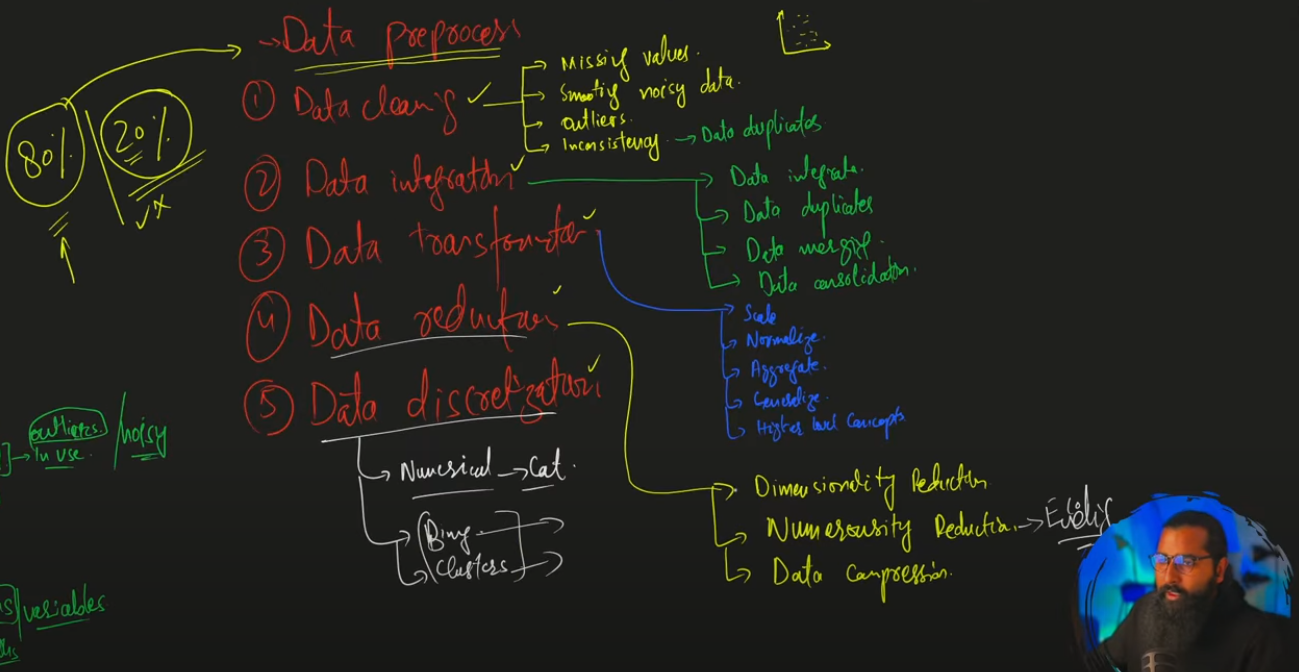 → Data preprocess
80% / 20%
① Data cleaning ✓
→ Missing values.
→ Smooting noisy data.
→ outliers.
→ Inconsistency → Data duplicates
② Data integration ✓
→ Data integrate.
→ Data duplicates
→ Data merging.
→ Data consolidation.
③ Data transformation ✓
→ Scale
→ Normalize.
→ Aggregate.
→ Generalize.
→ Higher level Concepts
④ Data reduction ✓
→ Dimensionality Reduction
→ Numerousity Reduction →
→ Data compression.
⑤ Data discretization ✓
→ Numerical → Cat.
→ Bins →
→ Clusters →
outliers. / noisy
→ In use.
variables